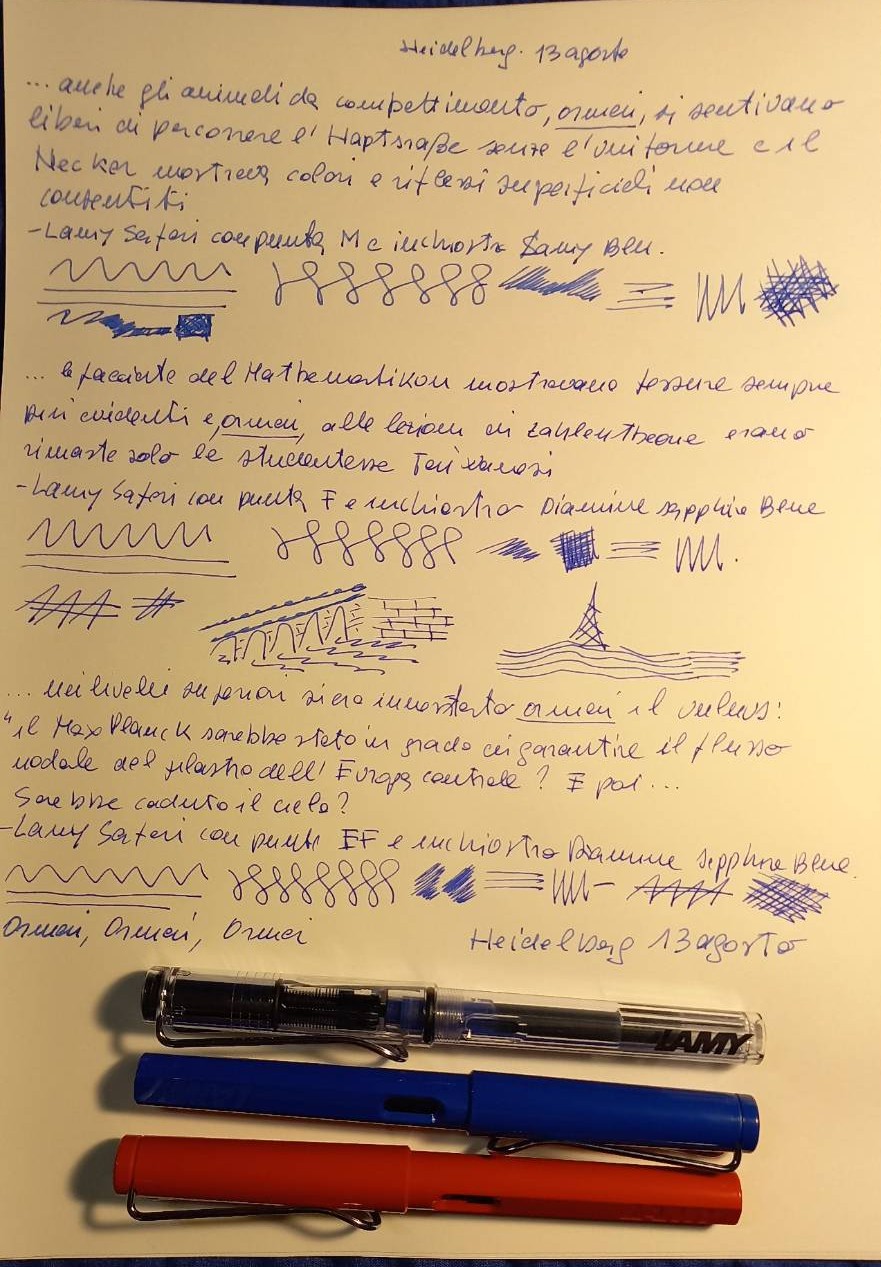 Heidelberg. 13 agosto
... anche gli animali da compattimento, ormai, si sentivano
liberi di percorrere l'Haptsraße senza l'uniforme e il
Neckar mostrava colori e riflessi superficiali non
consentiti
- Lamy Safari con punta M e inchiostro Lamy Blu.
... le facciate del Mathematikon mostravano tessere sempre
più evidenti e, ormai, alle lezioni di Zahlentheorie erano
rimaste solo le studentesse
- Lamy Safari con punta F e inchiostro Diamine sapphire Blue
... nei livelli superiori si era innestato ormai il
"il Max Planck sarebbe stato in grado di garantire il flusso
nodale del dell'Europa centrale? E poi...
Sarebbe caduto il cielo?
- Lamy Safari con punta EF e inchiostro Diamine sapphire Blue.
Ormai, Ormai, Ormai
Heidelberg 13 agosto
LAMY